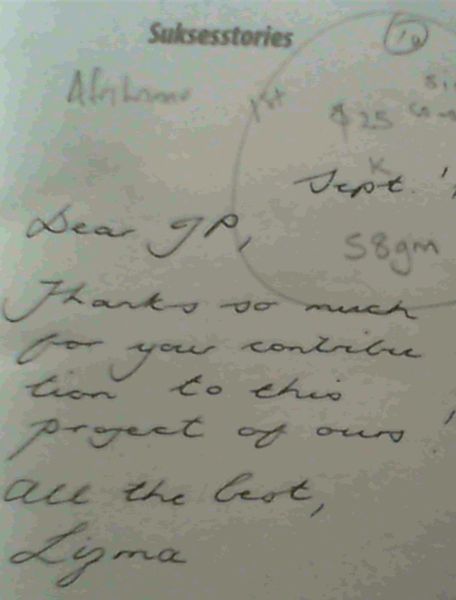 Suksesstories
10
Afrikaans
1st
$25
K
Sept. '
58gm
Dear JP,
Thanks so much
for your contribu
tion to this
project of ours!
All the best,
Lizma